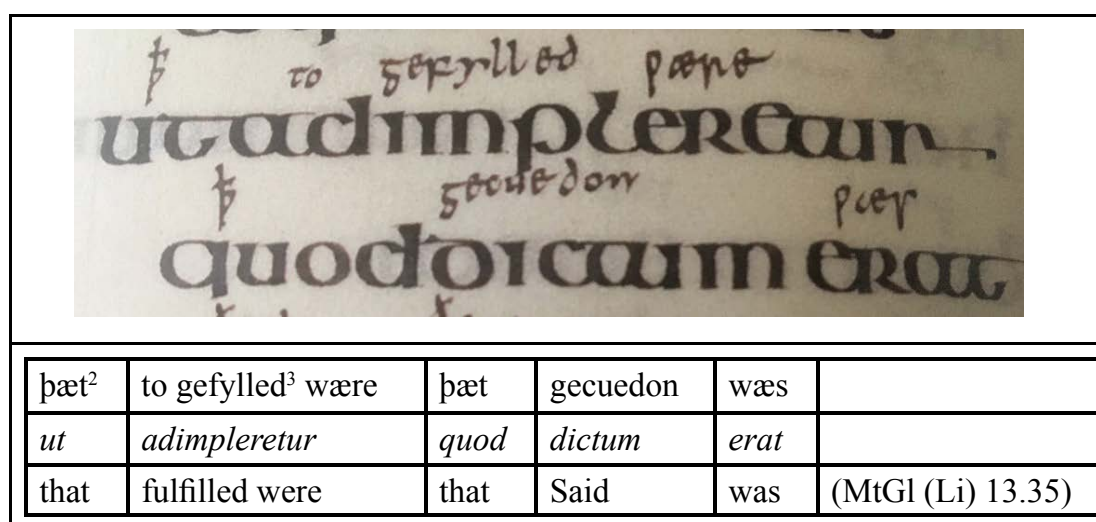 ꝥ to gefylled wære
utadimpleretur
ꝥ gecuedon wæs
quoddictum erat
þæt² to gefylled³ wære þæt gecuedon wæs
ut adimpleretur quod dictum erat
that fulfilled were that Said was (MtGl (Li) 13.35)